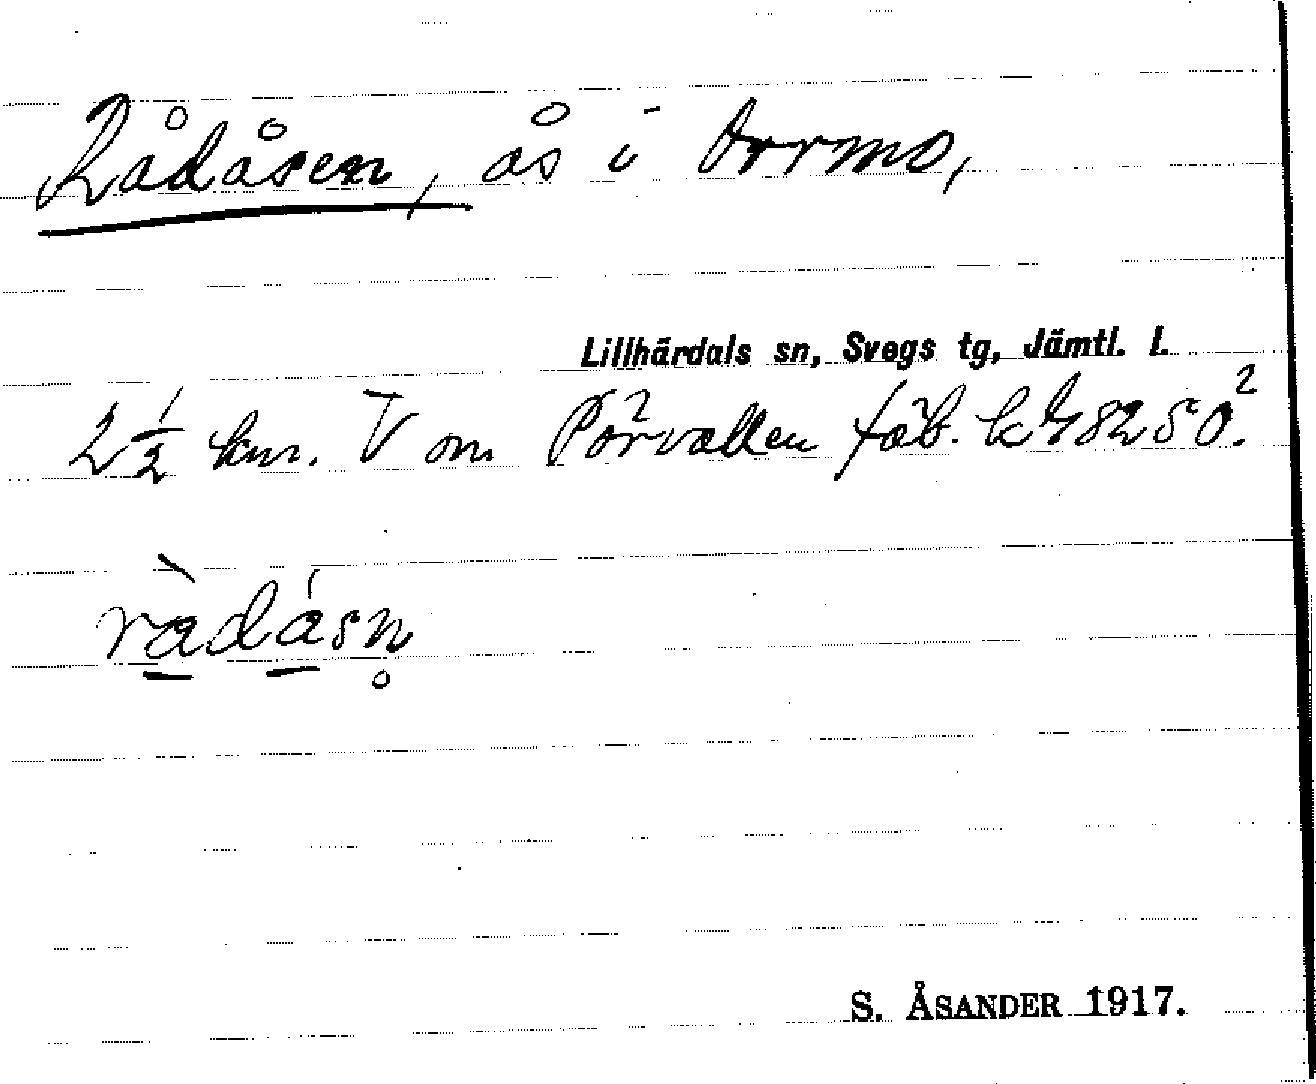 Rådåsen, ås i Orrmo,
Lillhärdals sn, Svegs tg, Jämtl. l.
2½ km. V om Pörvallen fäb. k48250².
ràdásn̥
S. ÅSANDER 1917.